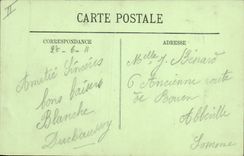 II
CARTE POSTALE
CORRESPONDANCE
ADRESSE
28-6-11
Amitié Sincères
bons baisers
Blanche
Melle J. Bénard
6 Ancienne route
de Rouen
Abbeville
Somme